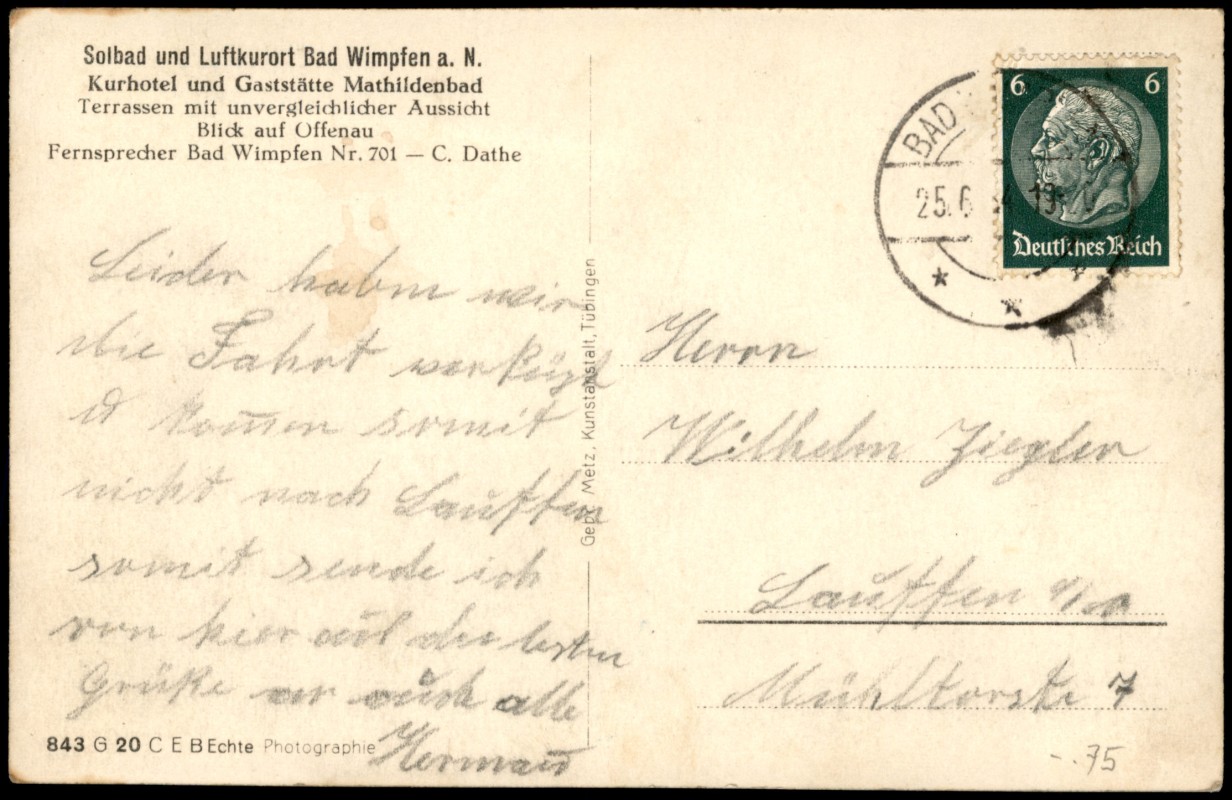 Solbad und Luftkurort Bad Wimpfen a. N.
Kurhotel und Gaststätte Mathildenbad
Terrassen mit unvergleichlicher Aussicht
Blick auf Offenau
Fernsprecher Bad Wimpfen Nr. 701 — C. Dathe
Leider habm wir
die Fahrt verkürzt
u kom̄en somit
nicht nach Lauffen
somit sende ich
von hier aus die besten
Grüße an euch alle
Hermann
843 G 20 C E B Echte Photographie
Gebr. Metz, Kunstanstalt, Tübingen
6 6
Deutsches Reich
BAD
25.6 19
Herrn
Wilhelm Ziegler
Lauffen a/n
Mühltorstr 7
-.75